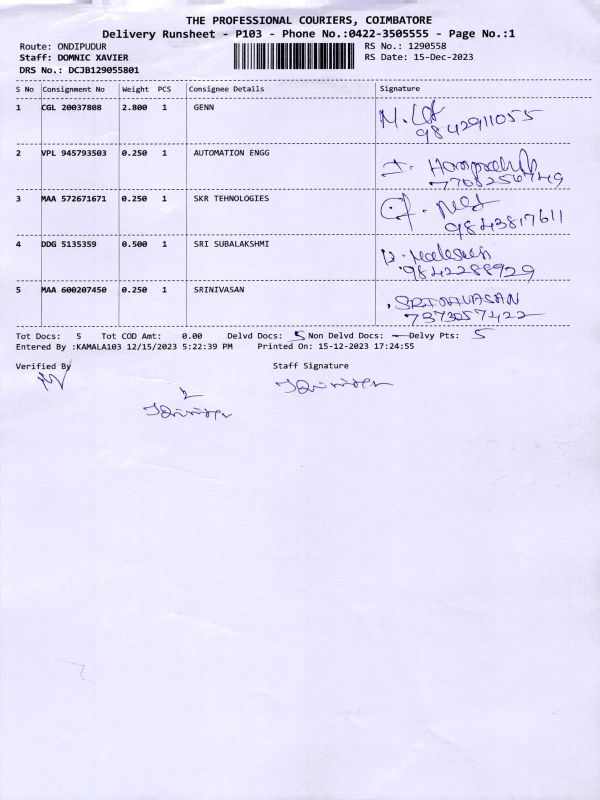 THE PROFESSIONAL COURIERS, COIMBATORE
Delivery Runsheet - P103 - Phone No.:0422-3505555 - Page No.:1
Route: ONDIPUDUR RS No.: 1290558
Staff: DOMNIC XAVIER RS Date: 15-Dec-2023
DRS No.: DCJB129055801
S No Consignment No Weight PCS Consignee Details Signature
1 CGL 20037808 2.800 1 GENN
9842911055
2 VPL 945793503 0.250 1 AUTOMATION ENGG
3 MAA 572671671 0.250 1 SKR TEHNOLOGIES
9843817611
4 DDG 5135359 0.500 1 SRI SUBALAKSHMI
9842288929
5 MAA 600207450 0.250 1 SRINIVASAN SRINIVASAN
7373057422
Tot Docs: 5 Tot COD Amt: 0.00 Delvd Docs: 5 Non Delvd Docs: — Delvy Pts: 5
Entered By :KAMALA103 12/15/2023 5:22:39 PM Printed On: 15-12-2023 17:24:55
Verified By Staff Signature